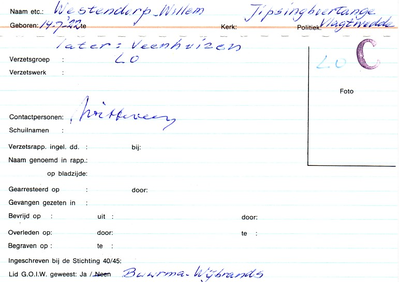 Naam etc.: Westendorp, Willem Jipsinghuertange
Geboren: 14-7-'22 te Kerk: Politiek: Vlagtwedde
Later: Veenhuizen
Verzetsgroep : LO LO C
Verzetswerk :
Foto
Contactpersonen: Witteveen
Schuilnamen :
Verzetsrapp. ingel. dd. : bij:
Naam genoemd in rapp.:
op bladzijde:
Gearresteerd op : door:
Gevangen gezeten in :
Bevrijd op : uit : door:
Overleden op : door: te :
Begraven op : te :
Ingeschreven bij de Stichting 40/45:
Lid G.O.I.W. geweest: Ja / Neen Buurma-Wijbrands